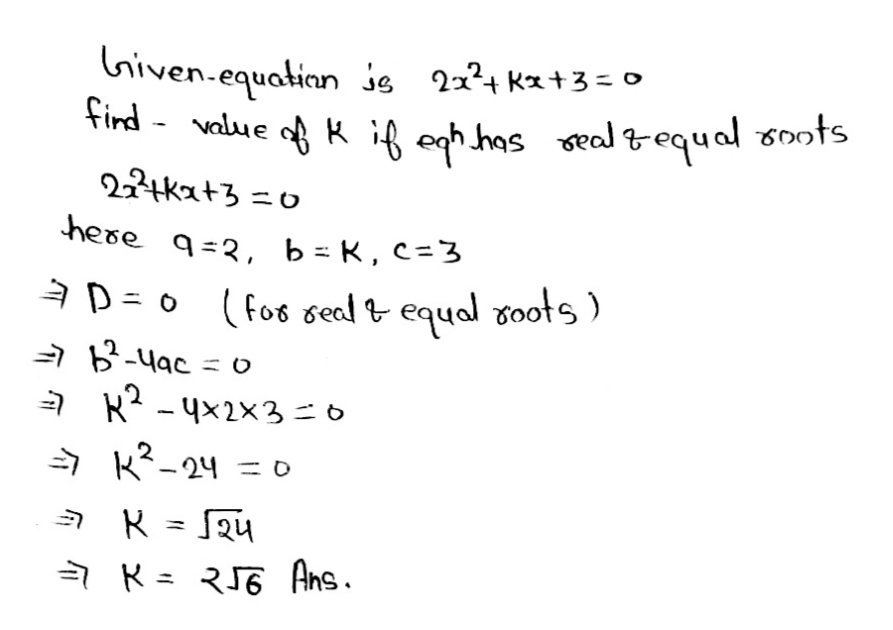 Given-equation is 2x²+Kx+3=0
find - value of K if eqn has real & equal roots
2x²+Kx+3=0
here a=2, b=K, c=3
⇒ D=0 (for real & equal roots)
⇒ b²-4ac=0
⇒ K²-4×2×3=0
⇒ K²-24=0
⇒ K=√24
⇒ K=2√6 Ans.